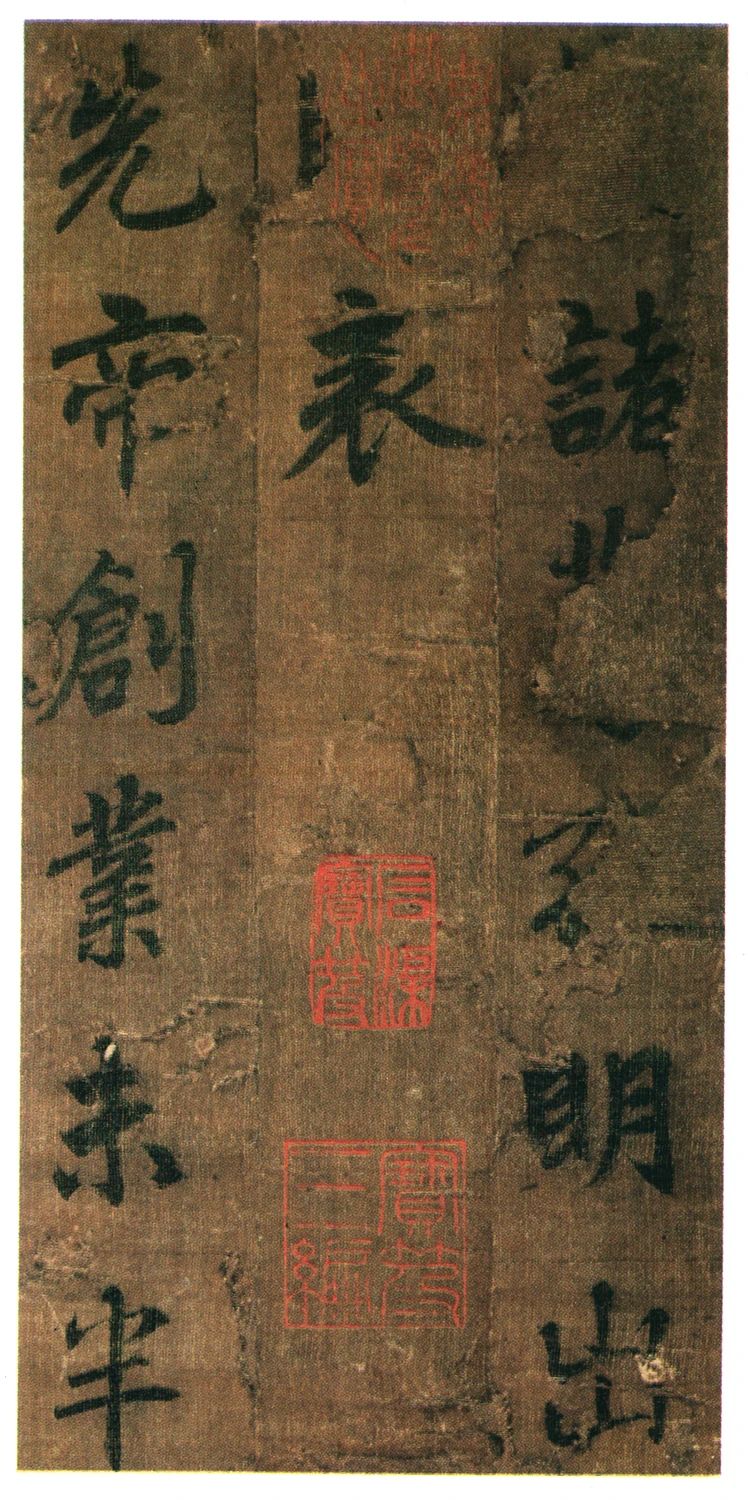 諸明出
表
先帝創業未半
石渠寶笈
寶笈三編